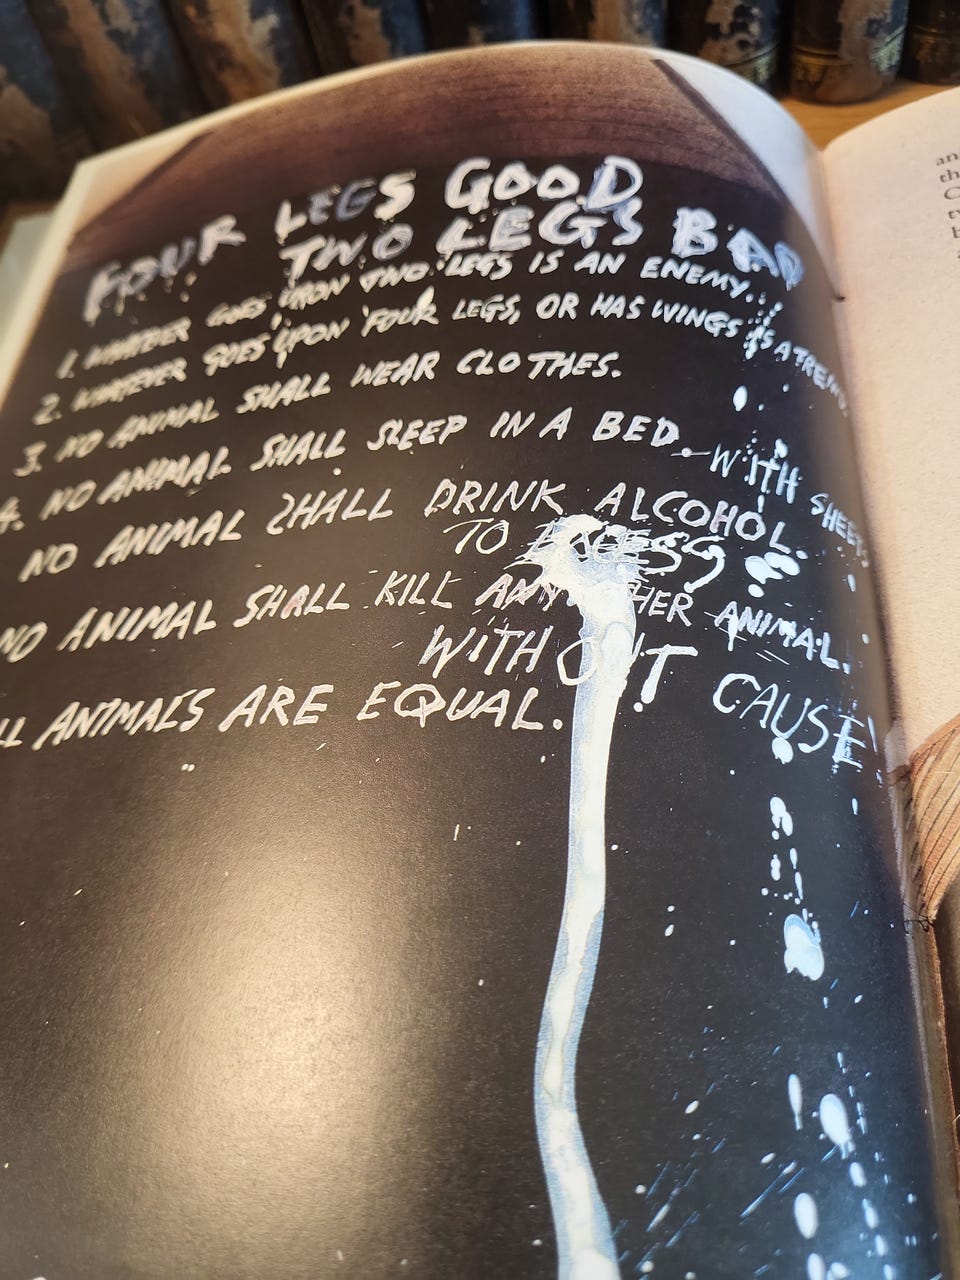 FOUR LEGS GOOD
TWO LEGS BAD
1. WHATEVER GOES UPON TWO LEGS IS AN ENEMY.
2. WHATEVER GOES UPON FOUR LEGS, OR HAS WINGS IS A FRIEND
3. NO ANIMAL SHALL WEAR CLOTHES.
4. NO ANIMAL SHALL SLEEP IN A BED WITH SHEETS
NO ANIMAL SHALL DRINK ALCOHOL.
TO EXCESS
NO ANIMAL SHALL KILL ANY OTHER ANIMAL.
WITHOUT CAUSE
LL ANIMALS ARE EQUAL.
an
th